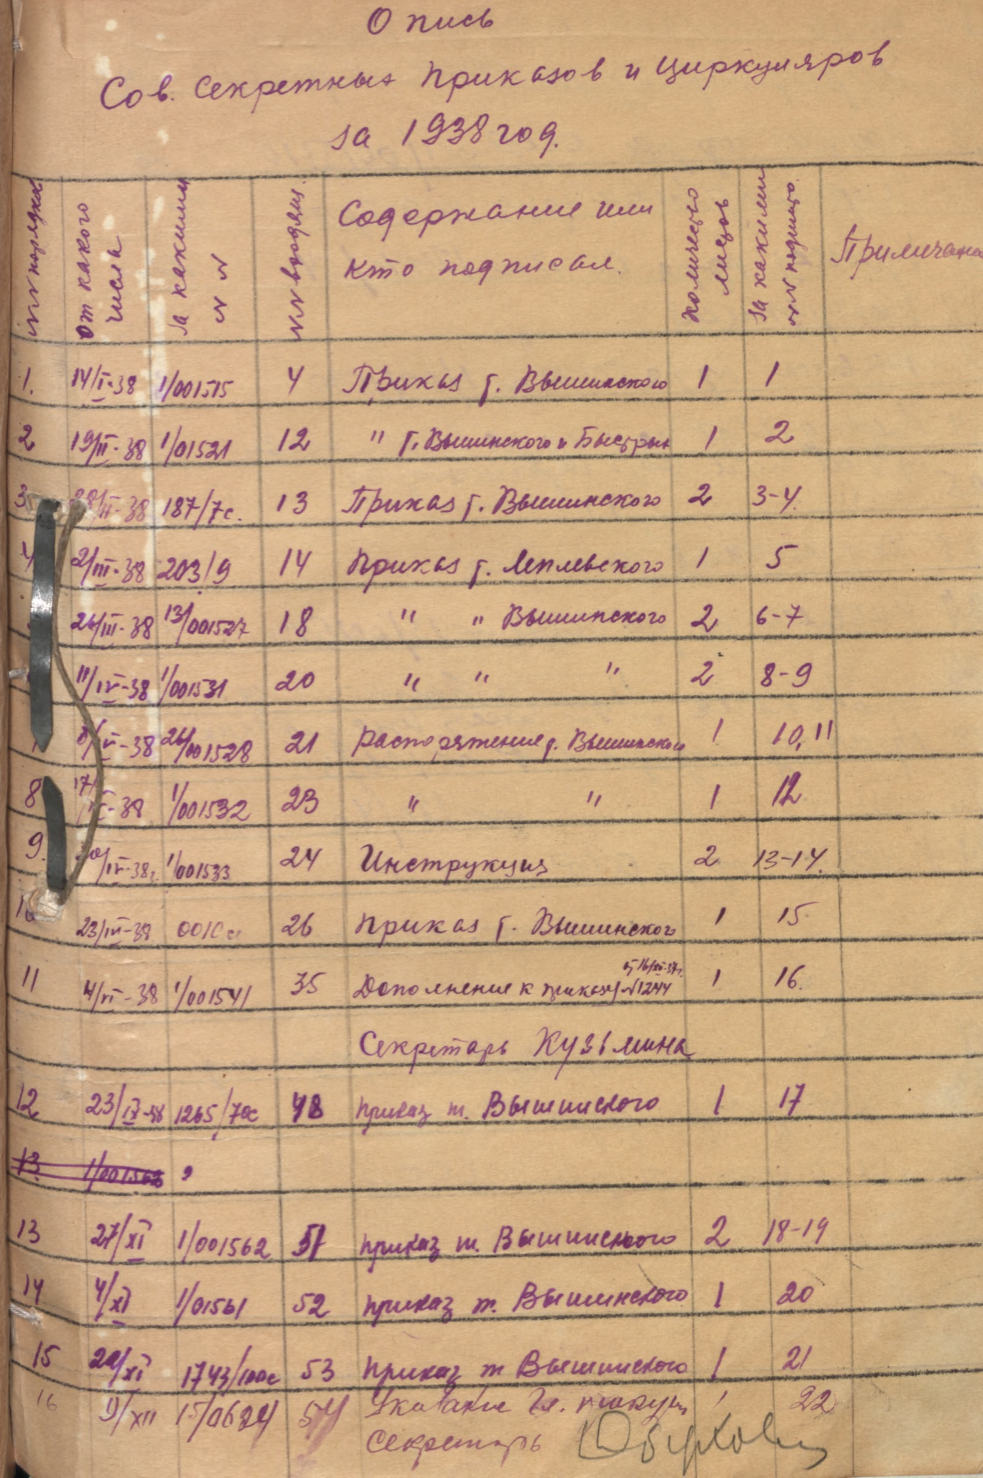 Опись
Сов. Секретных приказов и циркуляров
за 1938 год.
№№ порядков
от какого числа
за какими №№
№№ входящ.
Содержание или кто подписал.
Количество листов
за какими №№ подшито
Примечание
1. 14/I-38 1/001515 4 Приказ т. Вышинского 1 1
2 19/II-38 1/01521 12 " т. Вышинского и 1 2
3 /II-38 187/7с. 13 Приказ т. Вышинского 2 3-4
4 2/III-38 203/9 14 Приказ т. Леплевского 1 5
26/III-38 13/001527 18 " " Вышинского 2 6-7
11/IV-38 1/001531 20 " " " 2 8-9
/IV-38 26/001528 21 распоряжение т. Вышинского 1 10, 11
8 17/IV-38 1/001532 23 " " 1 12
9. /IV-38г. 1/001533 24 Инструкция 2 13-14.
10 23/IV-38 26 приказ т. Вышинского 1 15
11 4/VI-38 1/001541 35 Дополнение к приказу №1244 1 16.
Секретарь Кузьмина
12 23/IX-38 1265/7ос 48 приказ т. Вышинского 1 17
13. 1/001562
13 27/XI 1/001562 51 приказ т. Вышинского 2 18-19
14 4/XI 1/01561 52 приказ т. Вышинского 1 20
15 /XI 1743/100с 53 приказ т Вышинского 1 21
16 9/XII 15/0624 54 Указание Гл. 1 22
Секретарь